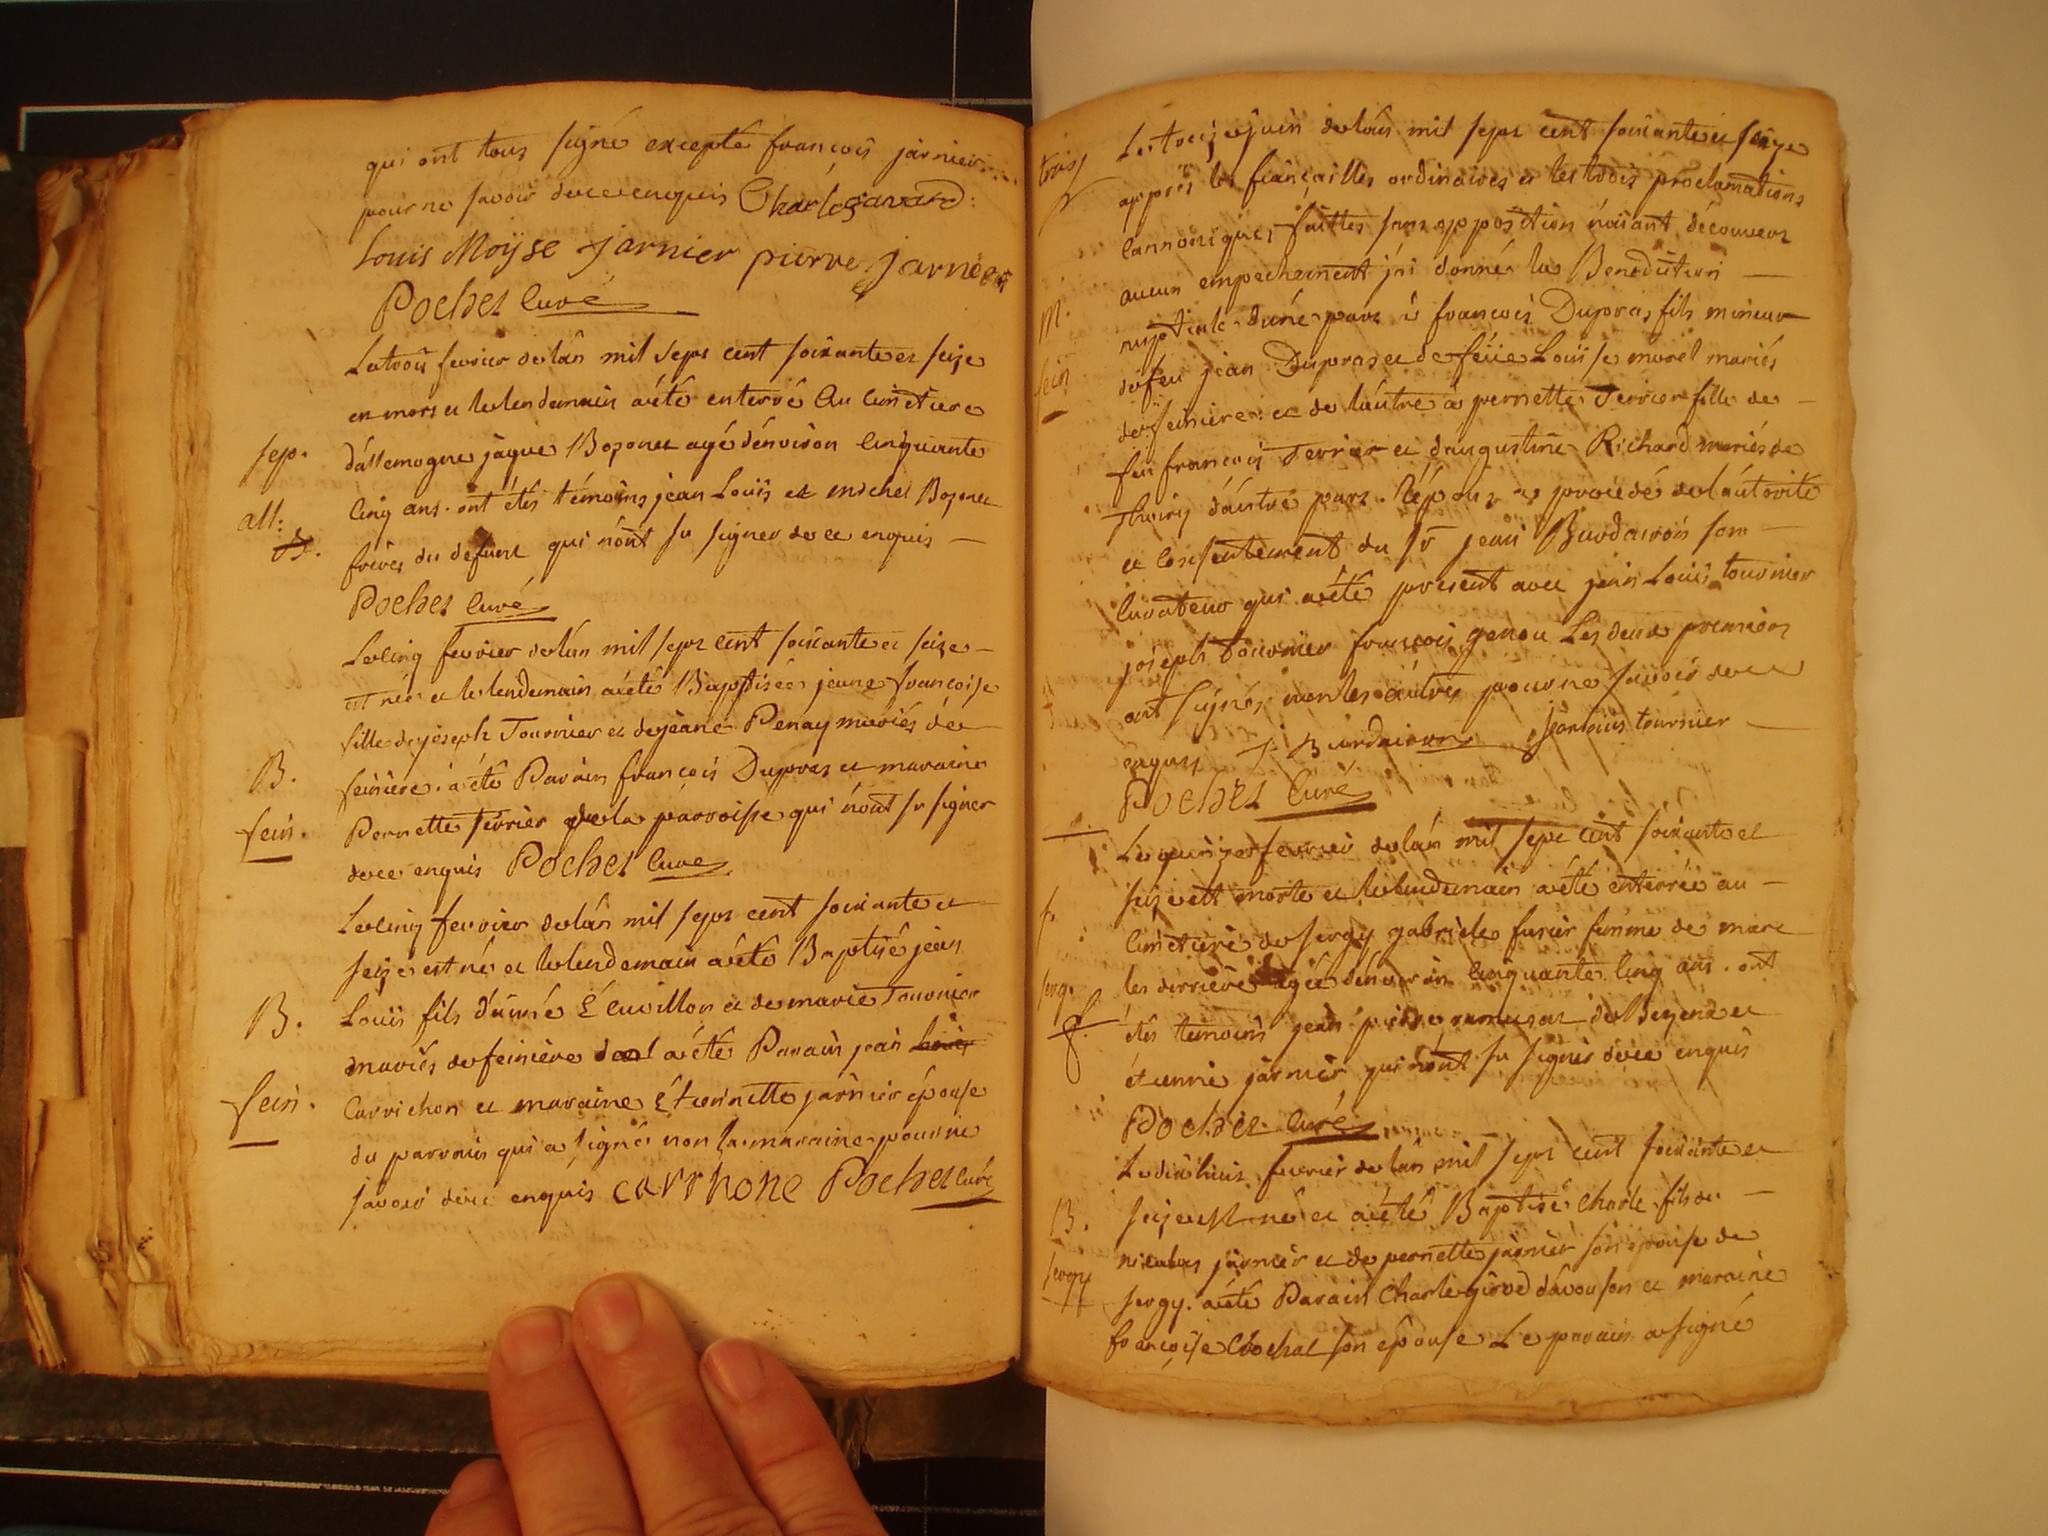 qui ont tous signé excepté françois jarnier
pour ne savoir de ce enquis Charle gavard
Louis Moÿse jarnier pierre jarnier
Pochet Curé
Le trois fevrier de lan mil sept cent soixante et seize
en mort et le lendemain a été enterré Au Cimetiere
sep. dallemogne jaque Bozonet agé dénviron Cinquante
all: Cinq ans. ont étés témoins jean Louïs et michel Bozonet
freres du defunt qui nónt su signer de ce enquis —
Pochet Curé
Le Cinq fevrier de lan mil sept cent soixante et seize —
est née et le lendemain a été Baptisée jeane françoise
fille de joseph Tournier et de jeane Penay mariés de
B. feiniere. a été Parain françois Dupras et maraine
fein. Pernette terrier de la parroisse qui nónt su signer
de ce enquis Pochet Curé
Le Cinq fevrier de lán mil sept cent soixante et
seize est né et le lendemain a été Baptisé jean
B. Louïs fils d'aimé Ecuvillon et de marie Tournier
mariés de feiniere a été Parain jean
fein. Carrichon et maraine étiennette jarnier épouse
du parrain qui a signé non la maraine pour ne
savoir de ce enquis Carrhone Pochet Curé
Le treize juin de lán mil sept cent soixante et seize
apprés les fiançailles ordinaires et les trois proclamations
Cannoniques faittes sans opposition n'aïant découvert
aucun empechement j'ai donné la Benediction —
M. nuptiale d'une part à françois Dupras fils mineur
fein de feu jean Dupras et de feüe Louïse murel mariés
de feiniere. et de láutre à pernette Terrier fille de —
feu françois Terrier et d'augustine Richard mariés de
Thoiry d'autre part. Lépoux a procedé de láutorité
et Consentement du sr jean Burdairon son —
Curateur qui a été present avec jean Louïs tournier
joseph Tournier françois genou Les deux premiers
ont signés non les autres pour ne savoir de ce
enquis J Burdairon jean louis tournier
Pochet Curé
Le quinze fevrier de lán mil sept cent soixante et
seize est morte et le lendemain a été enterrée au —
Cimetiere de sergy gabriele fusier femme de marc
serg. agée dénviron Cinquante Cinq ans. ont
étés temoins jean pierre ramusat de et
étienne jarnier qui nónt su signer de ce enquis
Pochet Curé
Le dix huit fevrier de lán mil sept cent soixante et
B. seize est né et a été Baptisé Charle fils de —
nicolas jarnier et de pernette jarnier son épouse de
sergy sergy. a été Parain Charle girod dávouson et maraine
françoise son epouse Le parain a signé